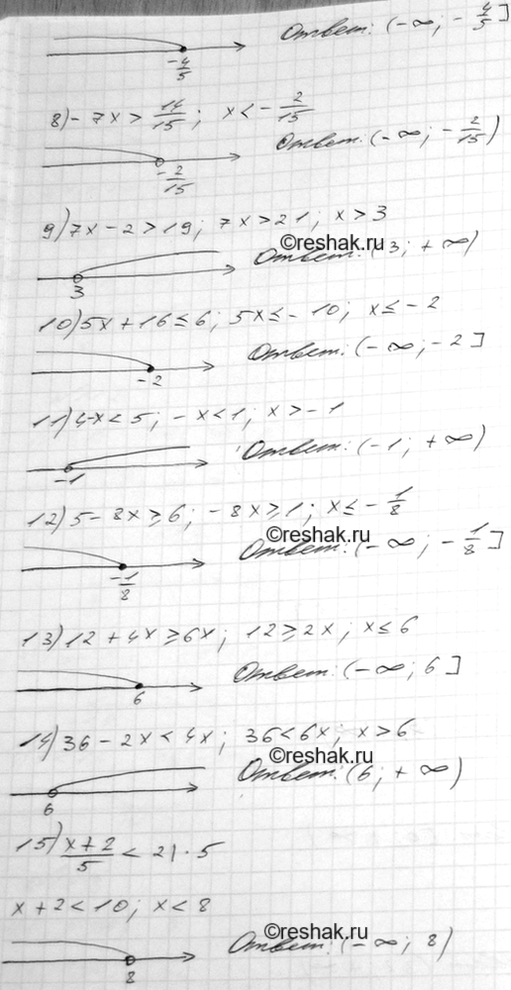 Ответ: (-∞; -4/5]
-4/5
8) -7x > 14/15; x < -2/15
Ответ: (-∞; -2/15)
-2/15
9) 7x - 2 > 19; 7x > 21; x > 3
©reshak.ru
Ответ: (3; +∞)
3
10) 5x + 16 ≤ 6; 5x ≤ -10; x ≤ -2
Ответ: (-∞; -2]
-2
11) 4-x < 5; -x < 1; x > -1
Ответ: (-1; +∞)
-1
12) 5 - 8x ≥ 6; -8x ≥ 1; x ≤ -1/8
©reshak.ru
Ответ: (-∞; -1/8]
-1/8
13) 12 + 4x ≥ 6x; 12 ≥ 2x; x ≤ 6
Ответ: (-∞; 6]
6
14) 36 - 2x < 4x; 36 < 6x; x > 6
©reshak.ru
Ответ: (6; +∞)
6
15) (x+2)/5 < 2 | · 5
x + 2 < 10; x < 8
©reshak.ru
Ответ: (-∞; 8)
8